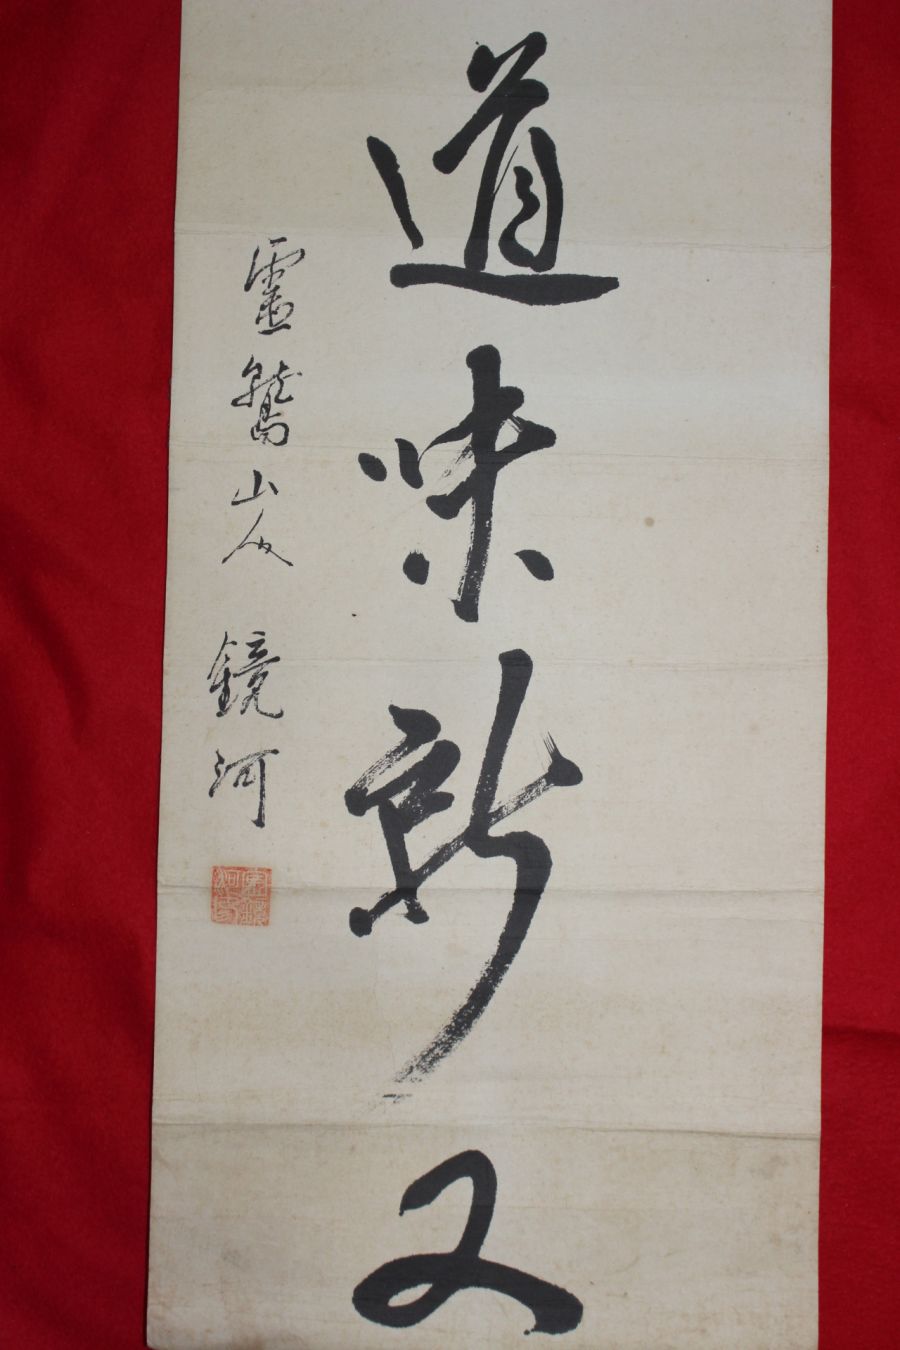 道味新又
靈鷲山人 鏡河